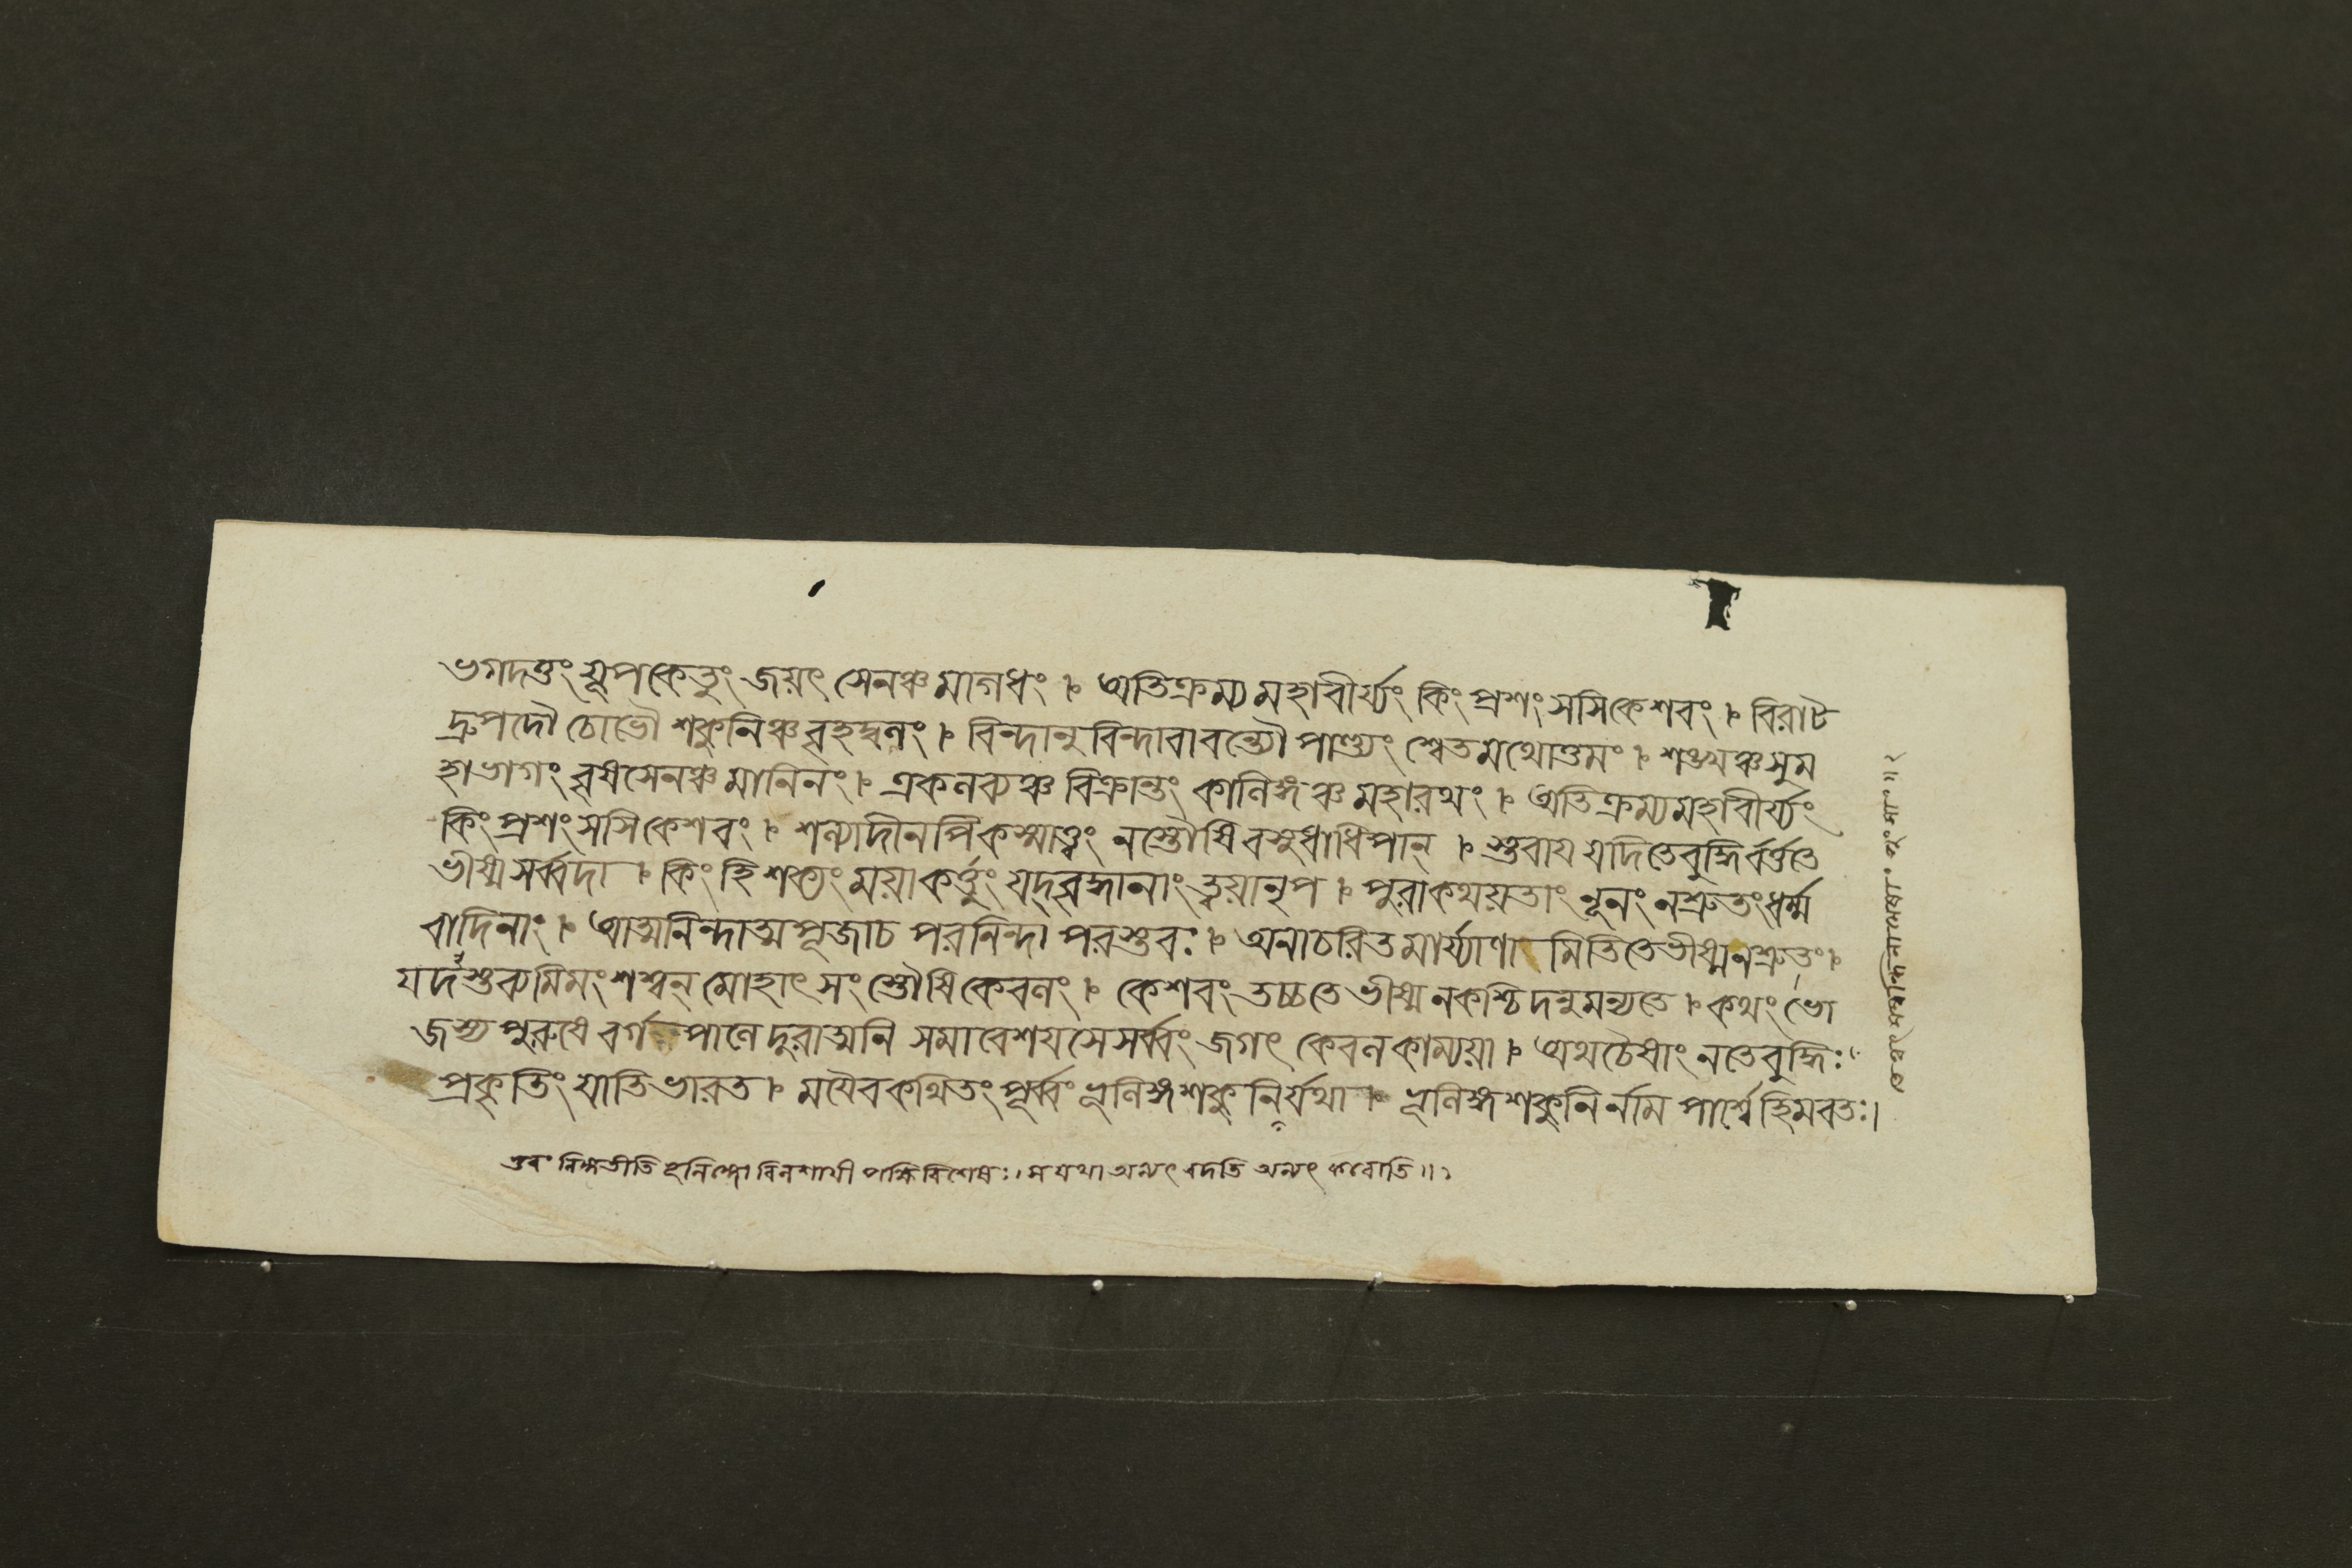 ভগদত্তং যূপকেতুং জয়ৎ সেনঞ্চ মাগধং । অতিক্রম্য মহাবীর্য্যং কিং প্রশং সসি কেশবং । বিরাট
দ্রুপদৌ চোভৌ শকুনিঞ্চ বৃহদ্বলং । বিন্দানু বিন্দাবাবন্ত্যৌ পাণ্ড্যং শ্বেতমথোত্তমং । শঙ্খঞ্চ সুম
হাভাগং বৃষসেনঞ্চ মানিনং । একলব্যঞ্চ বিক্রান্তং কালিঙ্গঞ্চ মহারথং । অতিক্রম্য মহাবীর্য্যং
কিং প্রশং সসি কেশবং । শল্যাদীনপি কস্মাত্ত্বং ন স্তৌষি বসুধাধিপান্ । স্তবায় যদি তে বুদ্ধির্বর্ত্ততে
ভীষ্ম সর্ব্বদা । কিং হি শক্যং ময়া কর্ত্তুং যদ্বৃদ্ধানাং ত্বয়া নৃপ । পুরা কথয়তাং নূনং ন শ্রুতং ধর্ম্ম
বাদিনাং । আত্মনিন্দাত্মপূজা চ পরনিন্দা পরস্তবঃ । অনাচরিতমার্য্যাণা মিতি তে ভীষ্ম ন শ্রুতং ।
যদস্তব্যমিমং শশ্বন্ মোহাৎ সংস্তৌষি কেবলং । কেশবং তচ্চ তে ভীষ্ম ন কশ্চিদনুমন্যতে । কথং ভো
জস্য পুরুষে বর্গ পালে দুরাত্মনি সমাবেশয়সে সর্ব্বং জগৎ কেবলকাম্যয়া । অথ চৈষাং ন তে বুদ্ধিঃ
প্রকৃতিং যাতি ভারত । ময়ৈব কথিতং পূর্ব্বং ভূলিঙ্গশকুনির্যথা । ভূলিঙ্গশকুনির্নাম পার্শ্বে হিমবতঃ।
ভুবং লিঙ্গতীতি ভূলিঙ্গো বিলশায়ী পক্ষিবিশেষঃ। স যথা অন্যৎ বদতি অন্যৎ করোতি॥